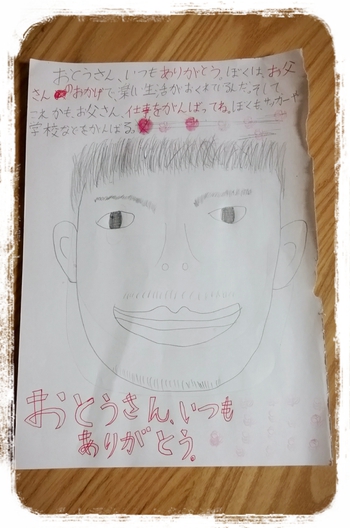 おとうさん、いつもありがとう。ぼくは、お父
さんのおかげで、楽しい生活がおくれてるんだ。そして、
これからも、お父さん、仕事をがんばってね。ぼくもサッカーや
学校などをがんばる。
おとうさん、いつも
ありがとう。